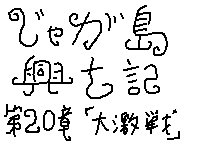 じゃが島
興亡記
第20章「大激戦」